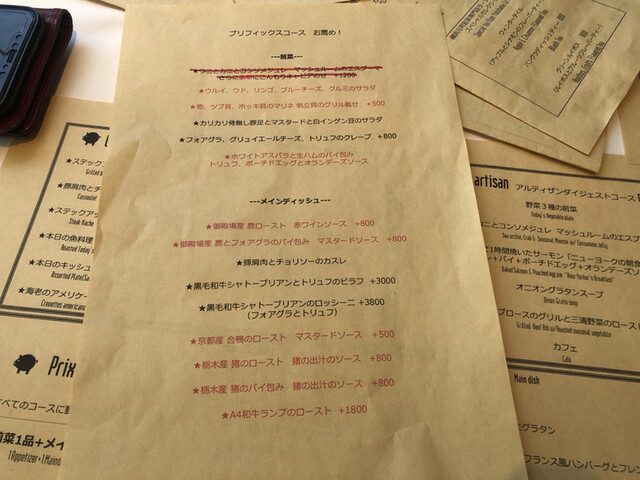 プリフィックスコース　お薦め！
---前菜---
★ウニとカニとコンソメジュレ　マッシュルームのエスプーマ
さらに豪華にこんもりキャビアのせ　+1200
★ウルイ、ウド、リンゴ、ブルーチーズ、クルミのサラダ
★筍、ツブ貝、ホッキ貝のマリネ 帆立貝のグリル載せ　+500
★カリカリ骨無し豚足とマスタードと白インゲン豆のサラダ
★フォアグラ、グリュイエールチーズ、トリュフのクレープ　+800
★ホワイトアスパラと生ハムのパイ包み
トリュフ、ポーチドエッグとオランデーズソース
---メインディッシュ---
★御殿場産 鹿ロースト　赤ワインソース　+800
★御殿場産 鹿とフォアグラのパイ包み　マスタードソース　+800
★豚肩肉とチョリソーのカスレ
★黒毛和牛シャトーブリアンとトリュフのピラフ　+3000
★黒毛和牛シャトーブリアンのロッシーニ　+3800
（フォアグラとトリュフ）
★京都産 合鴨のロースト　マスタードソース　+500
★栃木産 猪のロースト　猪の出汁のソース　+800
★栃木産 猪のパイ包み　猪の出汁のソース　+800
★A4和牛ランプのロースト　+1800
★ステック
Grilled b
★豚肩肉とチ
Cassoulet
★ステックアッ
Steak Hache
★本日の魚料理
Roasted Today's
★本日のキッシュ
Assorted Plate(Sa
★海老のアメリケー
Crevettes americano
Prix
すべてのコースに
前菜1品+メイ
1 Appetizer+1 Maind
ウィンターテイル
(アップルとシナモンのフレーバーティー)
Apple & Cinnamon Flavored Tea
バングラディッシュティー
Black Tea
グリーンルイボス
(ルイボスとグレープフルーツのフレーバーティー)
artisan アルティザンダイジェストコース
野菜３種の前菜
Today's Vegetable plate
ニとコンソメジュレ マッシュルームのエスプ
Sea urchin, Crab & Mushroom Mousse w/ Consomme Jelly
1時間焼いたサーモン「ニューヨークの朝食
ン+パイ+ポーチドエッグ+オランデーズソ
Baked Salmon & Poached egg pie "New Yorker's Breakfast"
オニオングラタンスープ
Onion Gratin soup
ブロースのグリルと三浦野菜のロースト
Grilled Beef Rib w/Roasted seasonal vegetable
カフェ
Café
Main dish
グラタン
フランス風ハンバーグとフレン